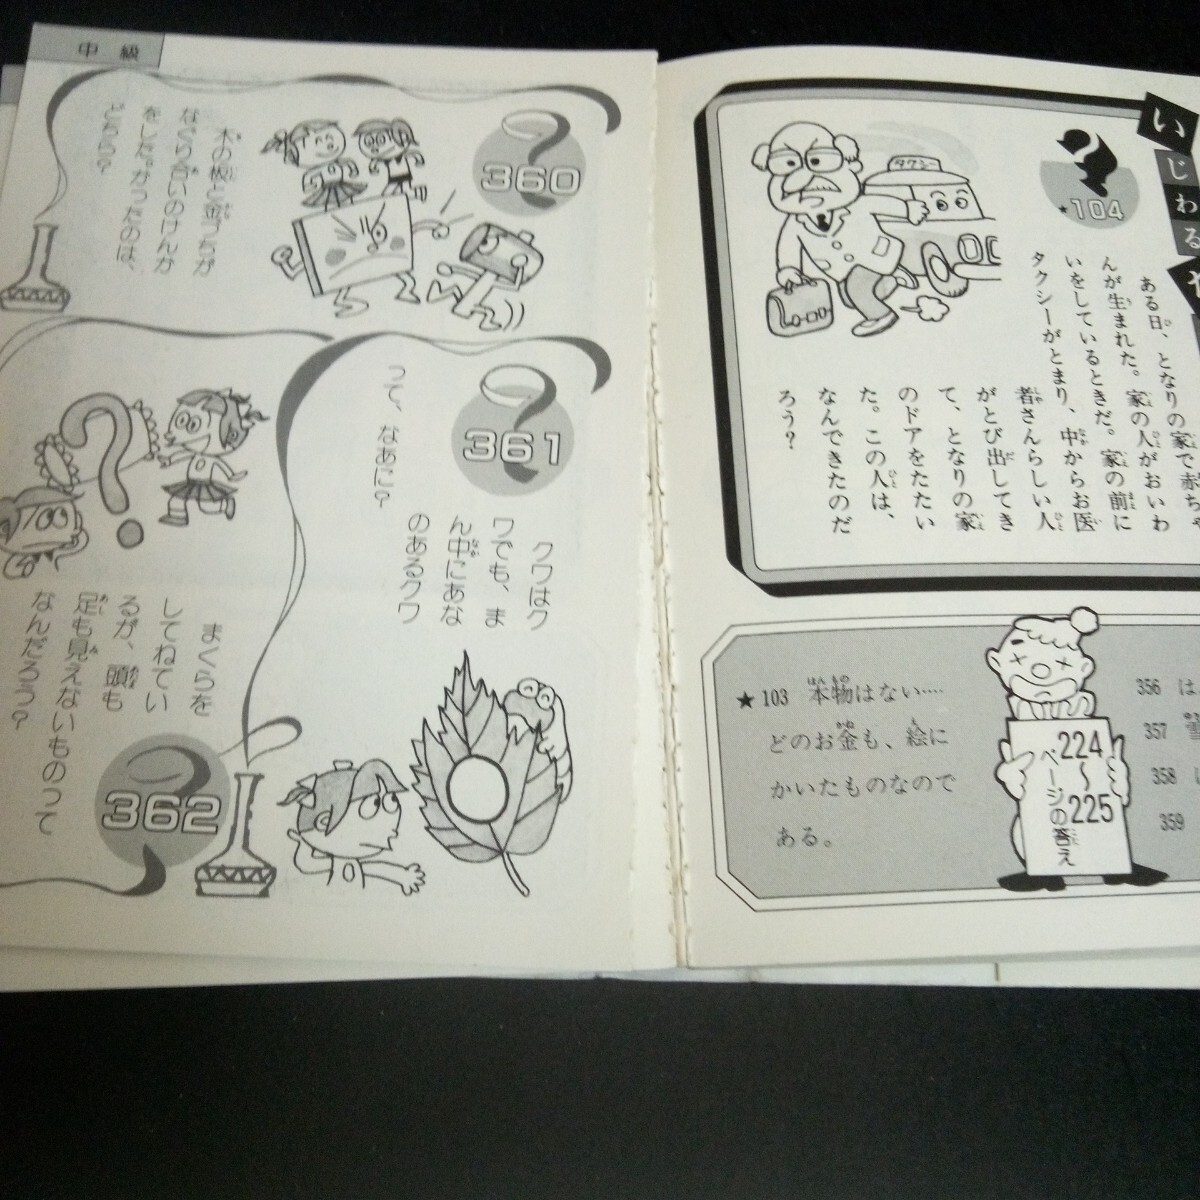 中級
360
木の板と金づちが
なぐり合いのけんか
をした。かったのは、
どちら？
361
クワはク
ワでも、ま
ん中にあな
のあるクワ
って、なあに？
362
まくらを
してねてい
るが、頭も
足も見えないものって
なんだろう？
いじわる
★104
タクシー
ある日、となりの家で赤ちゃ
んが生まれた。家の人がおいわ
いをしているときだ。家の前に
タクシーがとまり、中からお医
者さんらしい人
がとび出してき
て、となりの家
のドアをたたい
た。この人は、
なんできたのだ
ろう？
★103 本物はない‥‥
どのお金も、絵に
かいたものなので
ある。
224〜225
ページの答え
356 は
357
358
359